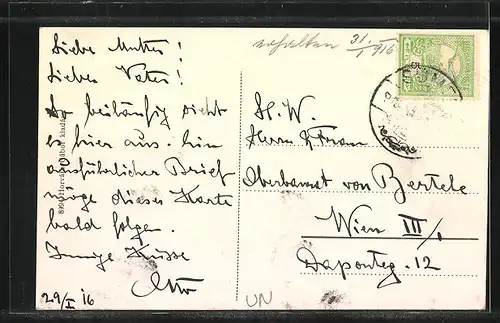 Liebe Mutter!
Lieber Vater!
So beiläufig sieht
es hier aus. Ein
ausführlicher Brief
möge dieser Karte
bald folgen.
Innige Küsse
Otto
29/I 16
erhalten 31/I 916
H. W.
Herrn & Frau
Oberbaurat von Bertele
Wien III/1
Daponteg. 12
UN